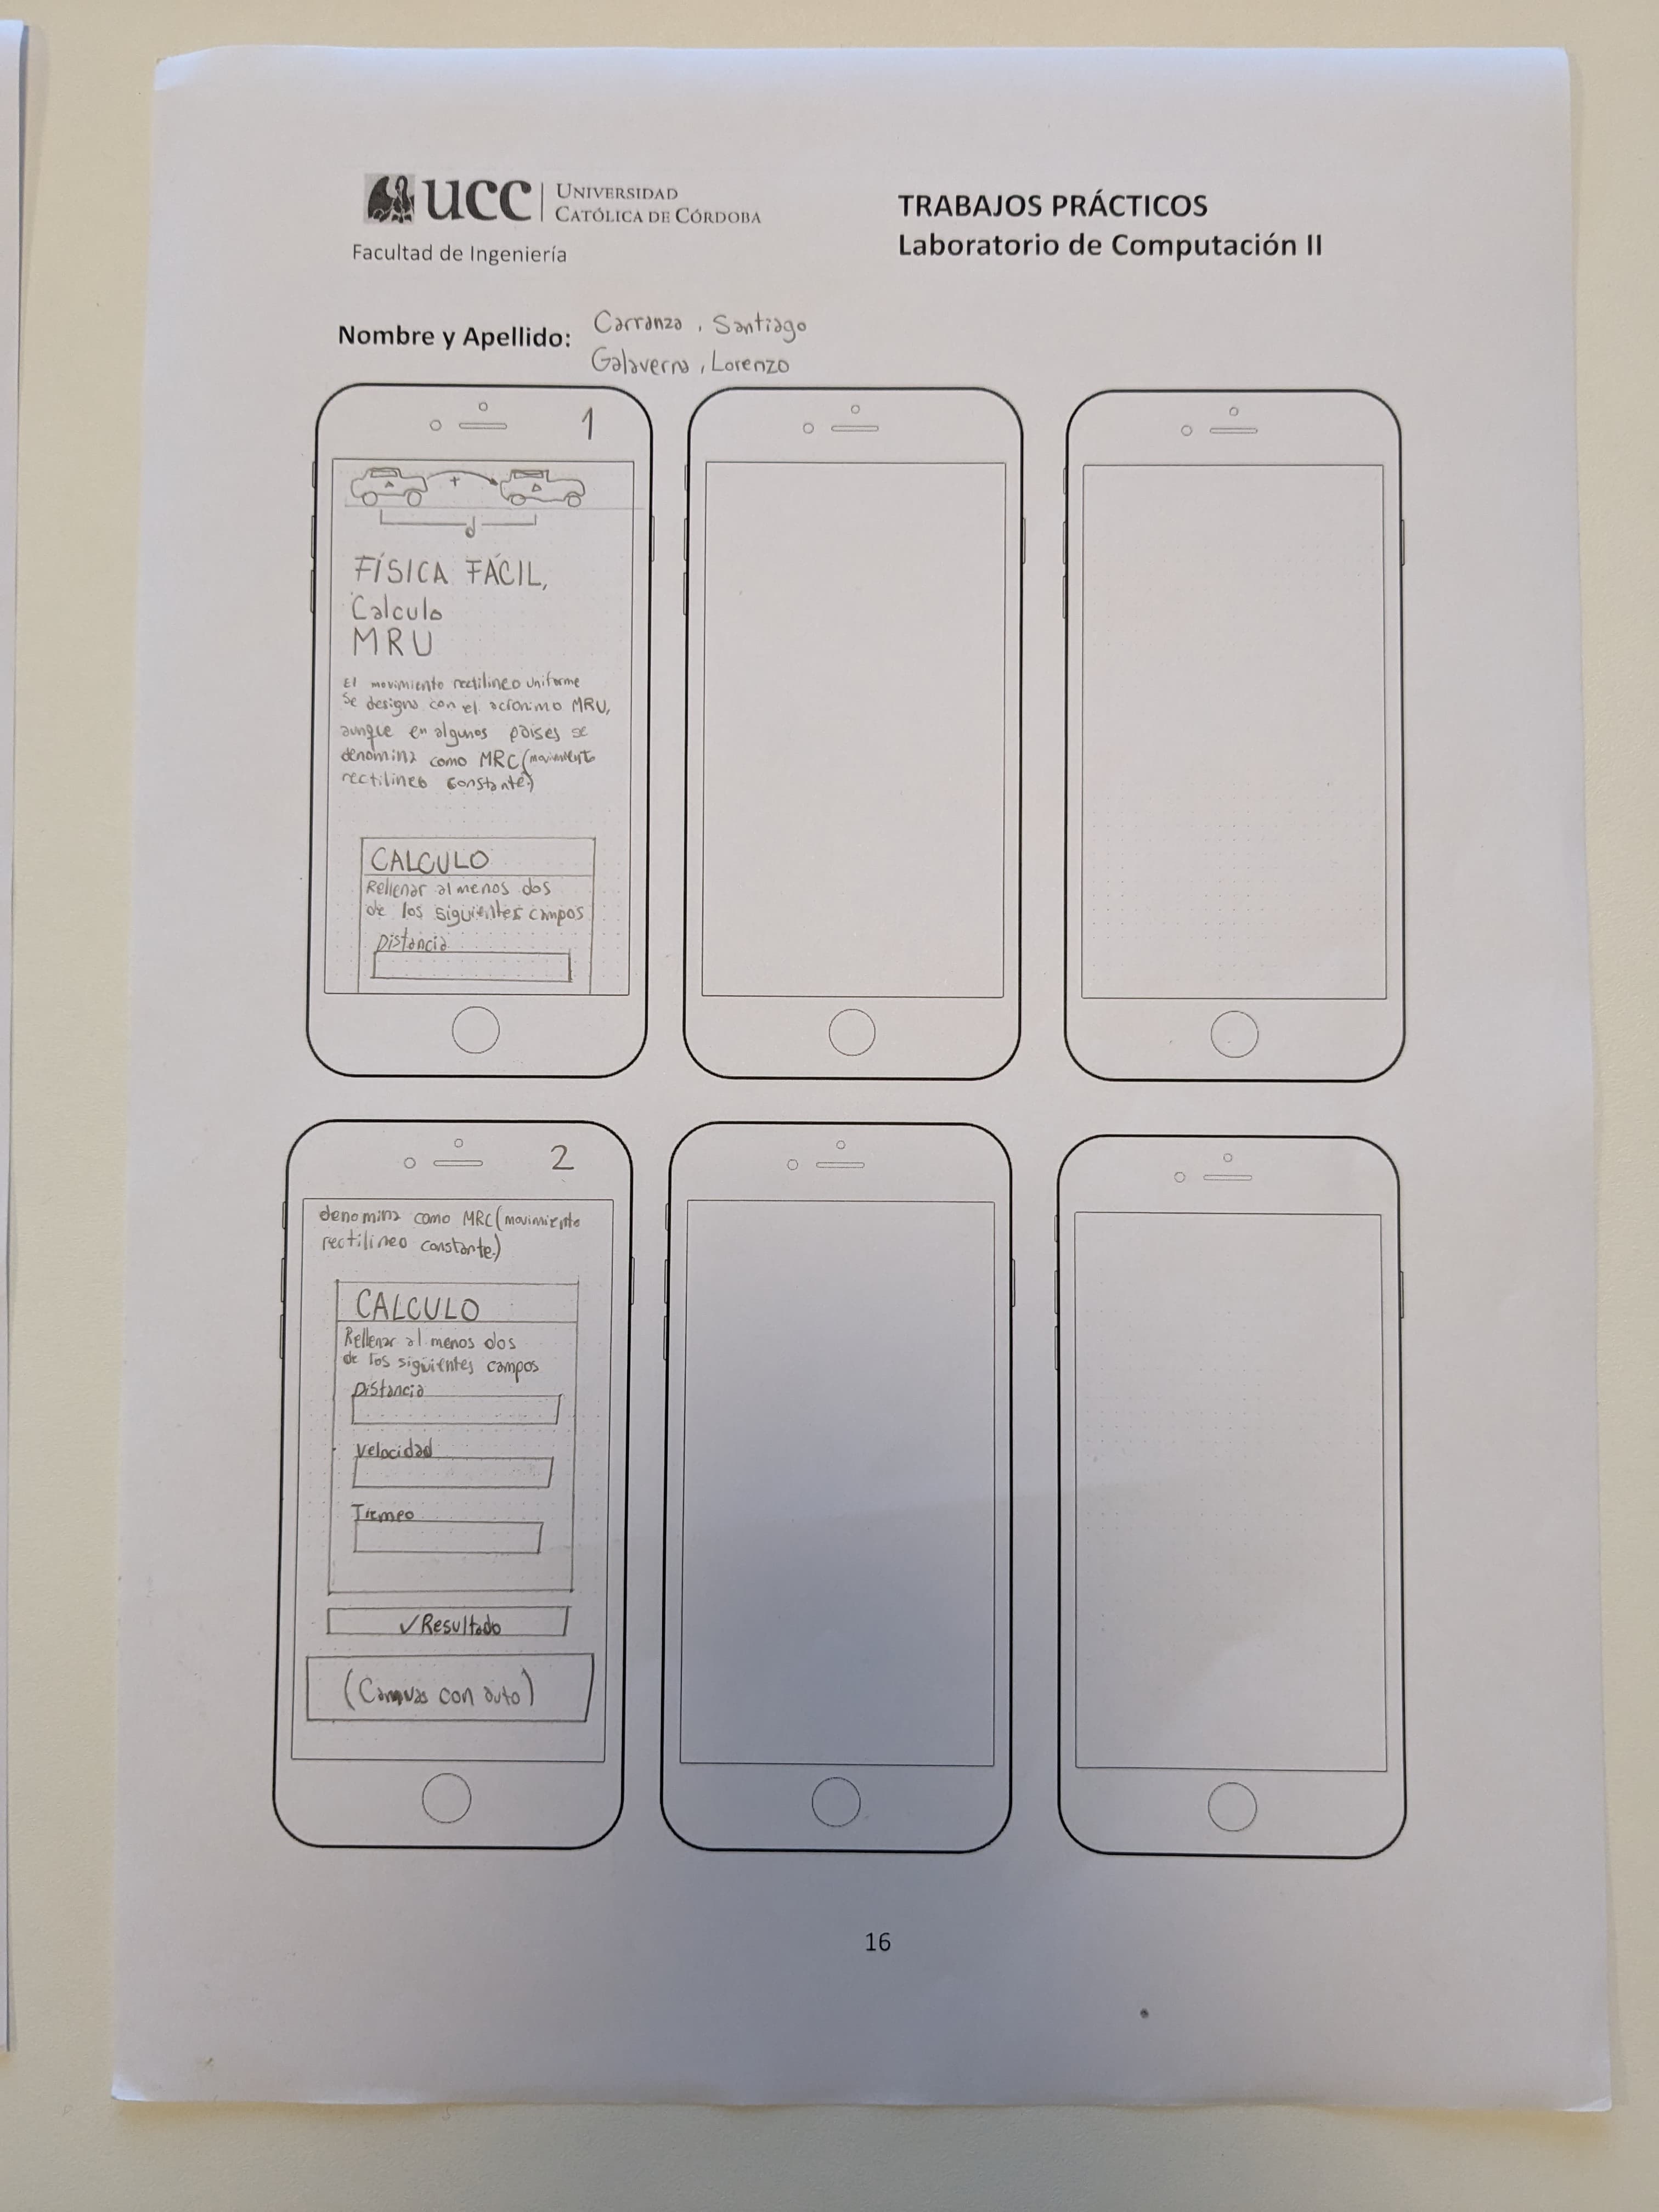 UCC UNIVERSIDAD CATÓLICA DE CÓRDOBA
Facultad de Ingeniería
TRABAJOS PRÁCTICOS
Laboratorio de Computación II
Nombre y Apellido: Carranza, Santiago
Galaverna, Lorenzo
1
d
FÍSICA FÁCIL,
Calculo
MRU
El movimiento rectilineo uniforme
se designa con el acrónimo MRU,
aunque en algunos paises se
denomina como MRC (movimiento
rectilineo constante.)
CALCULO
Rellenar al menos dos
de los siguientes campos
Distancia
2
denomina como MRC (movimiento
rectilineo constante.)
CALCULO
Rellenar al menos dos
de los siguientes campos
Distancia
Velocidad
Tiempo
✓Resultado
(Canvas con auto)
16